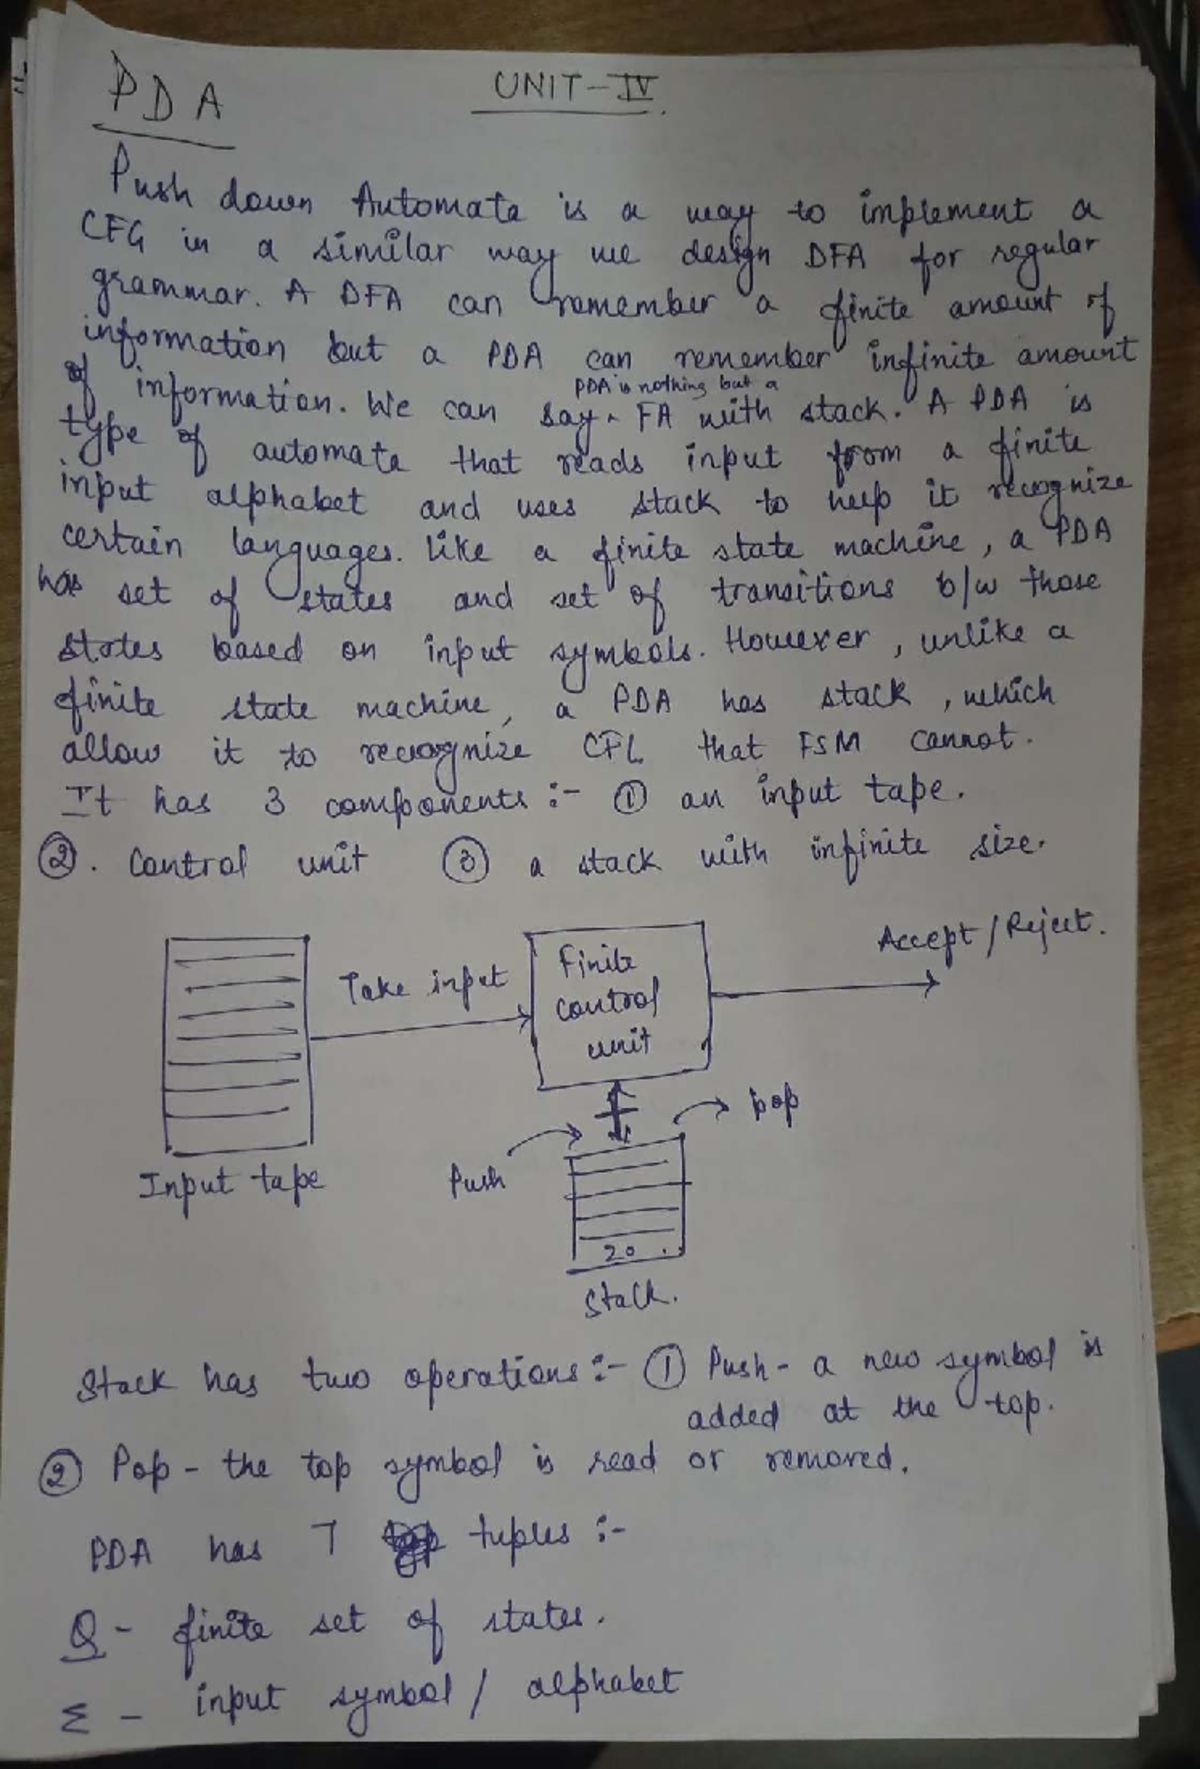 PDA
UNIT-IV
Push down Automata is a way to implement a
CFG in a similar way we design DFA for regular
grammar. A DFA can remember a finite amount of
information but a PDA can remember infinite amount
of information. We can say PDA is nothing but a FA with stack. A PDA is
type of automate that reads input from a finite
input alphabet and uses stack to help it recognize
certain languages. Like a finite state machine, a PDA
has set of states and set of transitions b/w those
states based on input symbols. However, unlike a
finite state machine, a PDA has stack, which
allow it to recognize CFL that FSM cannot.
It has 3 components :- ① an input tape.
②. Control unit ③ a stack with infinite size.
Accept / Reject.
Take input
Finite
control
unit
pop
Push
Input tape
Stack.
Stack has two operations :- ① Push - a new symbol is
added at the top.
② Pop - the top symbol is read or removed.
PDA has 7 tuples :-
Q - finite set of states.
Σ - input symbol / alphabet